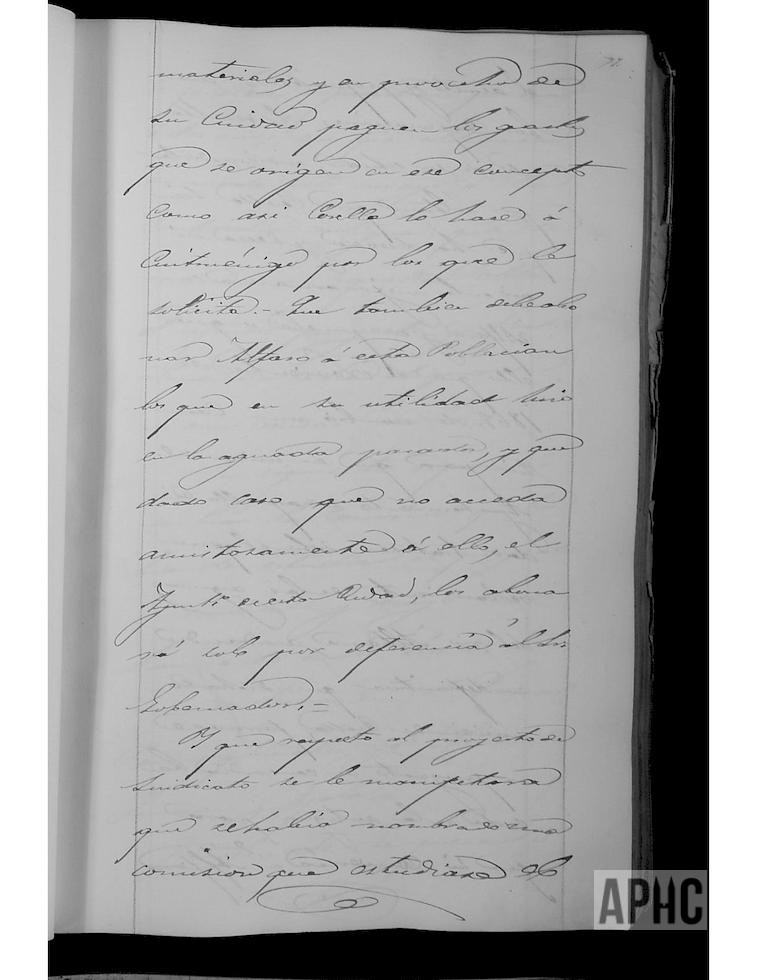 materiales y en provecho de
su Ciudad paguen los gastos
que se origen en ese concepto
como asi Corella lo hace á
Cintruénigo por los que le
solicita.- Que tambien debe abo
nar Alfaro á esta Poblacion
los que en su utilidad hizo
en la aguada pasada, y que
dado caso que no acceda
amistosamente á ello, el
Ayunt.º de esta Ciudad, los abona
rá solo por deferencia al Sr.
Gobernador.=
Y que respecto al proyecto de
Sindicato se le manifestara
que se habia nombrado una
comision que estudiase el
APHC